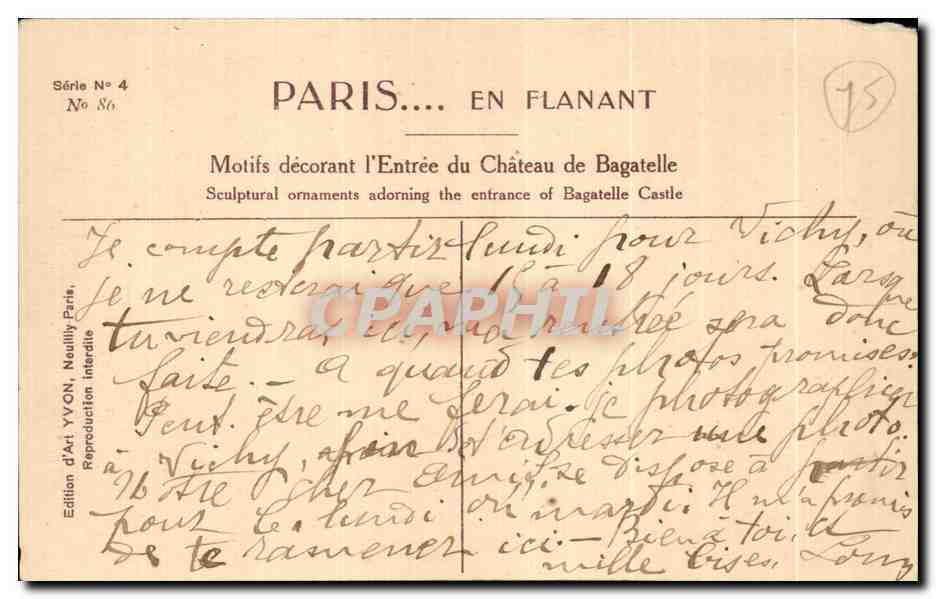 Série Nº 4
Nº 86
75
PARIS.... EN FLANANT
Motifs décorant l'Entrée du Château de Bagatelle
Sculptural ornaments adorning the entrance of Bagatelle Castle
Edition d'Art YVON, Neuilly Paris,
Reproduction interdite
Je compte partir lundi pour Vichy, où
je ne resterai que 15 à 18 jours. Lorsque
tu viendras ici, ma rentrée sera donc
faite. - A quand tes photos promises.
Peut être me ferai-je photographier
à Vichy, afin d'adresser une photo.
Notre cher ami se dispose à partir
pour le lundi ou mardi. Il m'a promis
de te ramener ici. - Bien à toi, et
mille bises,
CPAPHIL